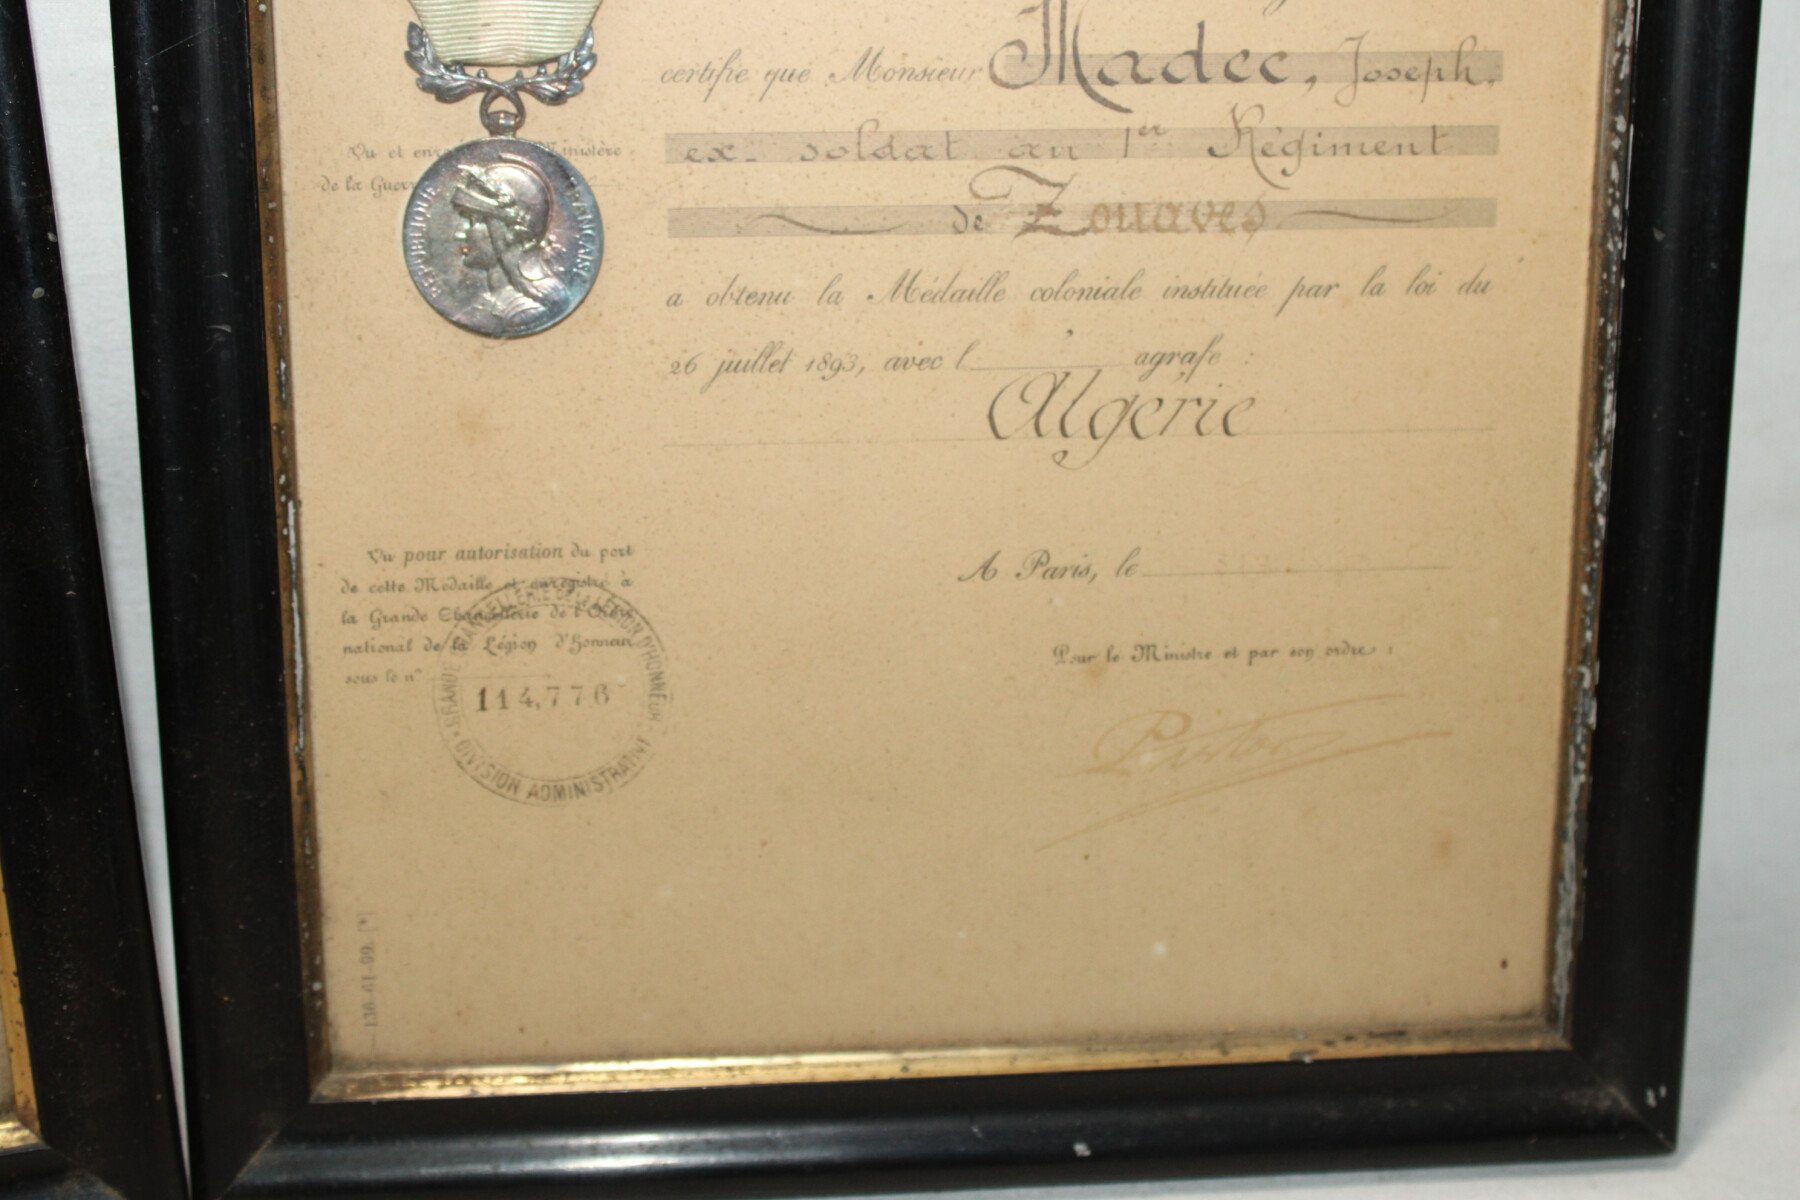 certifie que Monsieur Madec, Joseph.
ex- soldat au 1er Régiment
de Zouaves
a obtenu la Médaille coloniale instituée par la loi du
26 juillet 1893, avec l' agrafe :
Algérie
A Paris, le
Pour le Ministre et par son ordre :
Vu et Ministère
de la Guerre
RÉPUBLIQUE FRANÇAISE
Vu pour autorisation du port
de cette Médaille et enregistré à
la Grande Chancellerie de l'Ordre
national de la Légion d'Honneur
sous le n°
114,776
GRANDE CHANCELLERIE DE LA LÉGION D'HONNEUR
DIVISION ADMINISTRATIVE